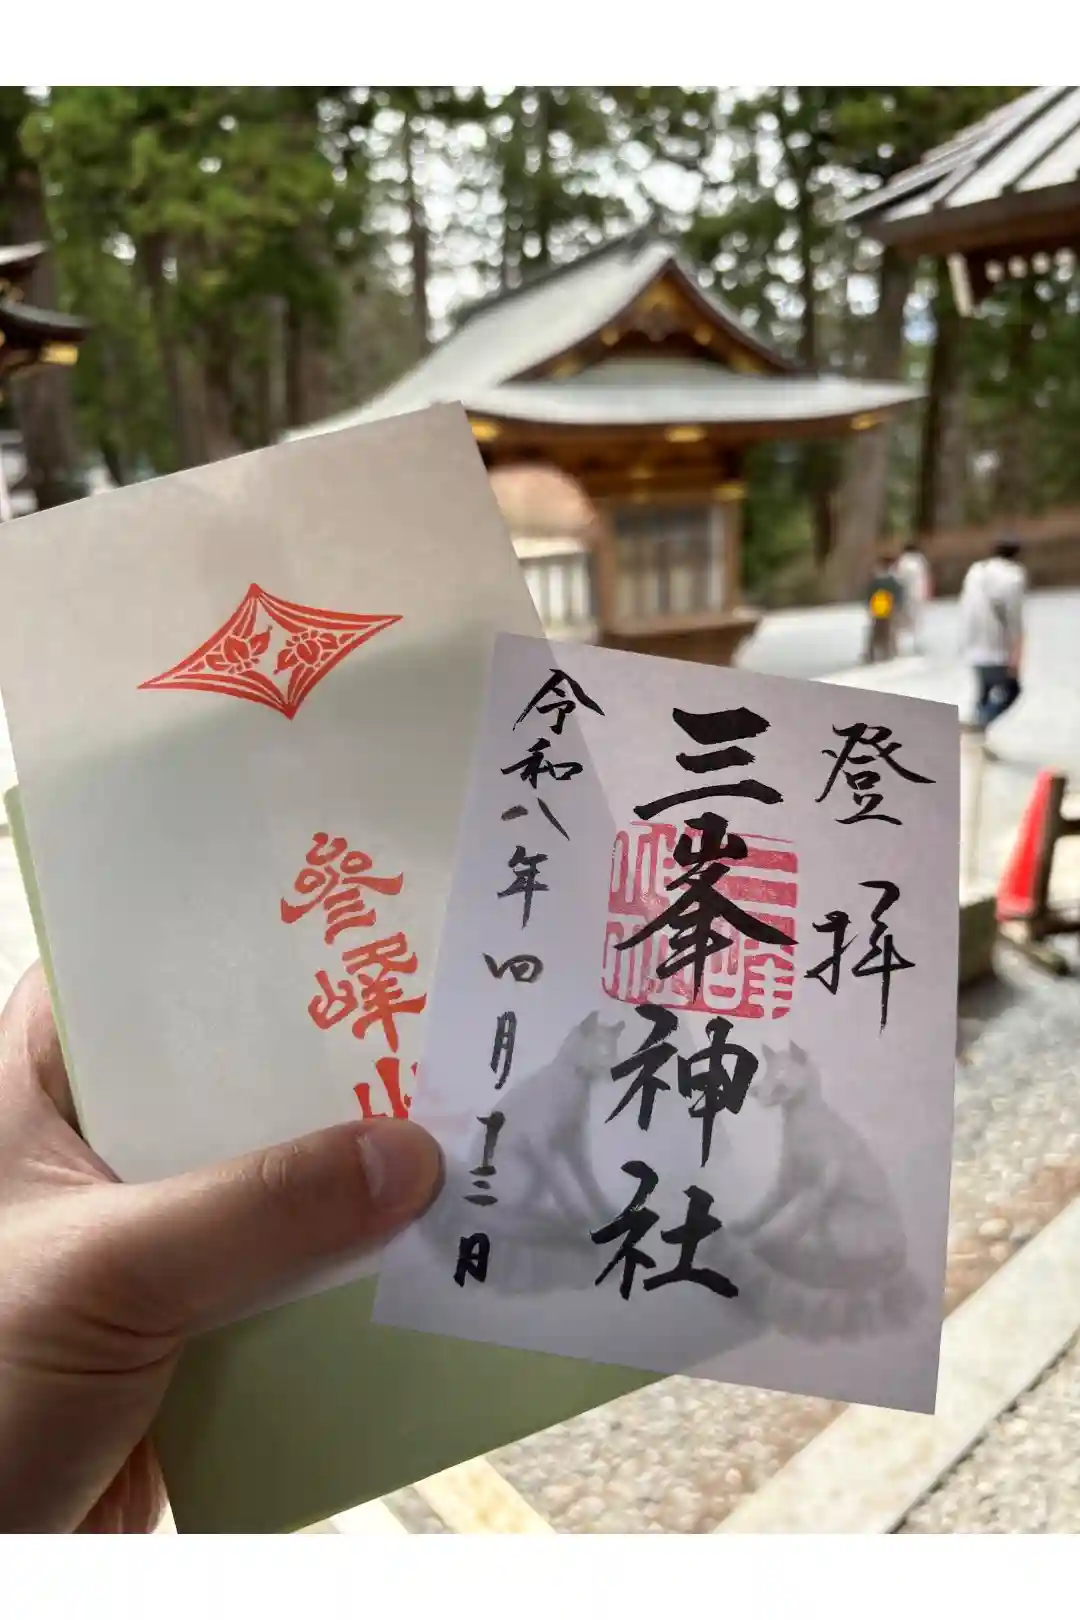 登拝
三峯神社
令和八年四月十二日
登峰山